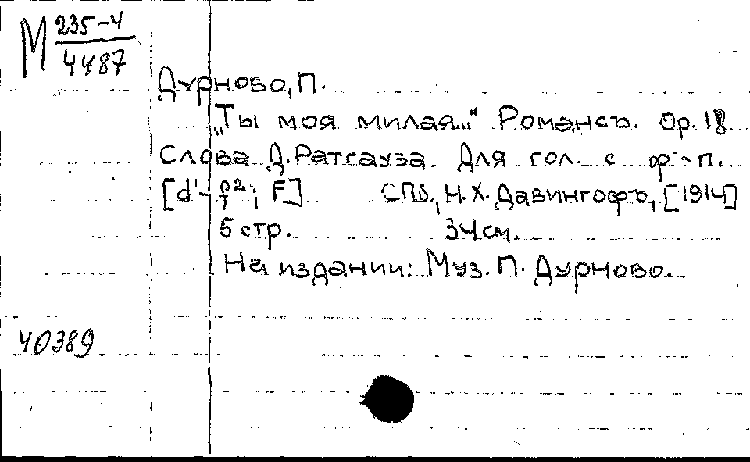 М 235-4
4487
Дурново, П.
"Ты моя милая..." Романсъ. Op. 18
Слова Д. Ратгауза. Для гол. с ф-п.
[d'- ; F] СПб., Н.Х. Давингофъ, [1914]
5 стр. 34 см.
На издании: Муз. П. Дурново.
40389